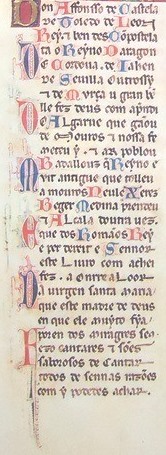 Don Affonsso de Castela
de Toledo de Leon
Rey τ ben des Conpostela
ta o Reyno daragon
De Cordova. de Jahen
de Sevilla outrossy
τ de Murça u gran ben
lle fez deus com aprendi
Do Algarue que gãou
de mouros τ nossa fe
meteu y. τ ar poblou
Badallouz que Reyno é
Mui antigue que tolleu
a mouros Neule Xerez
Beger Medina prendeu
τ Alcala doutra vez
E que dos Romãos Rey
é per dereit e Sennor
este Liuro com achei
fez. a onrr' e a loor
Da uirgen santa maria
que este madre de deus
en que ele muyto fia
poren dos miragres seus
Fezo cantares τ sões
saborosos de Cantar
todos de sennas razões
com y podedes achar.